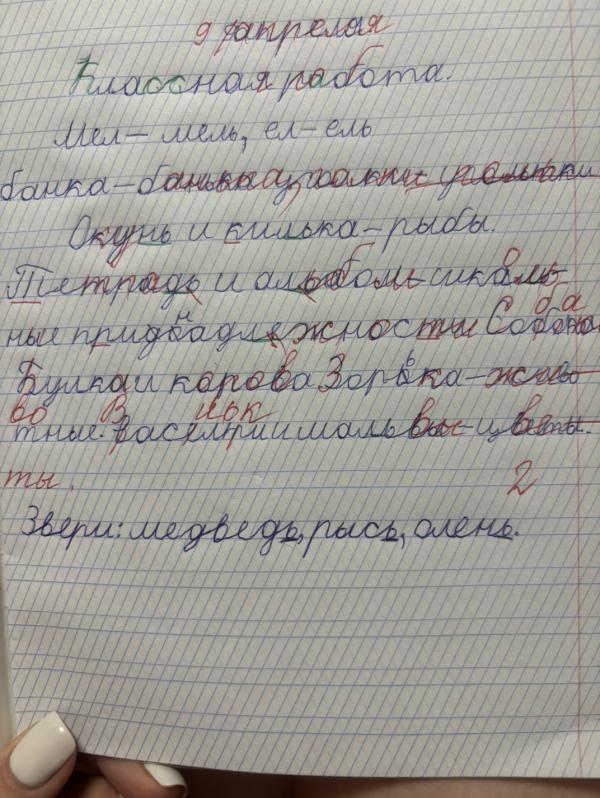 9 апреля
Классная работа.
Мел – мель, ел – ель
банка – банька,
Окунь и килька – рыбы.
Тетрадь и альбом –
ные принадлежности Собака
Булка и корова Зорька –
тные. и мальвы – цветы.
ты.
2
Звери: медведь, рысь, олень.